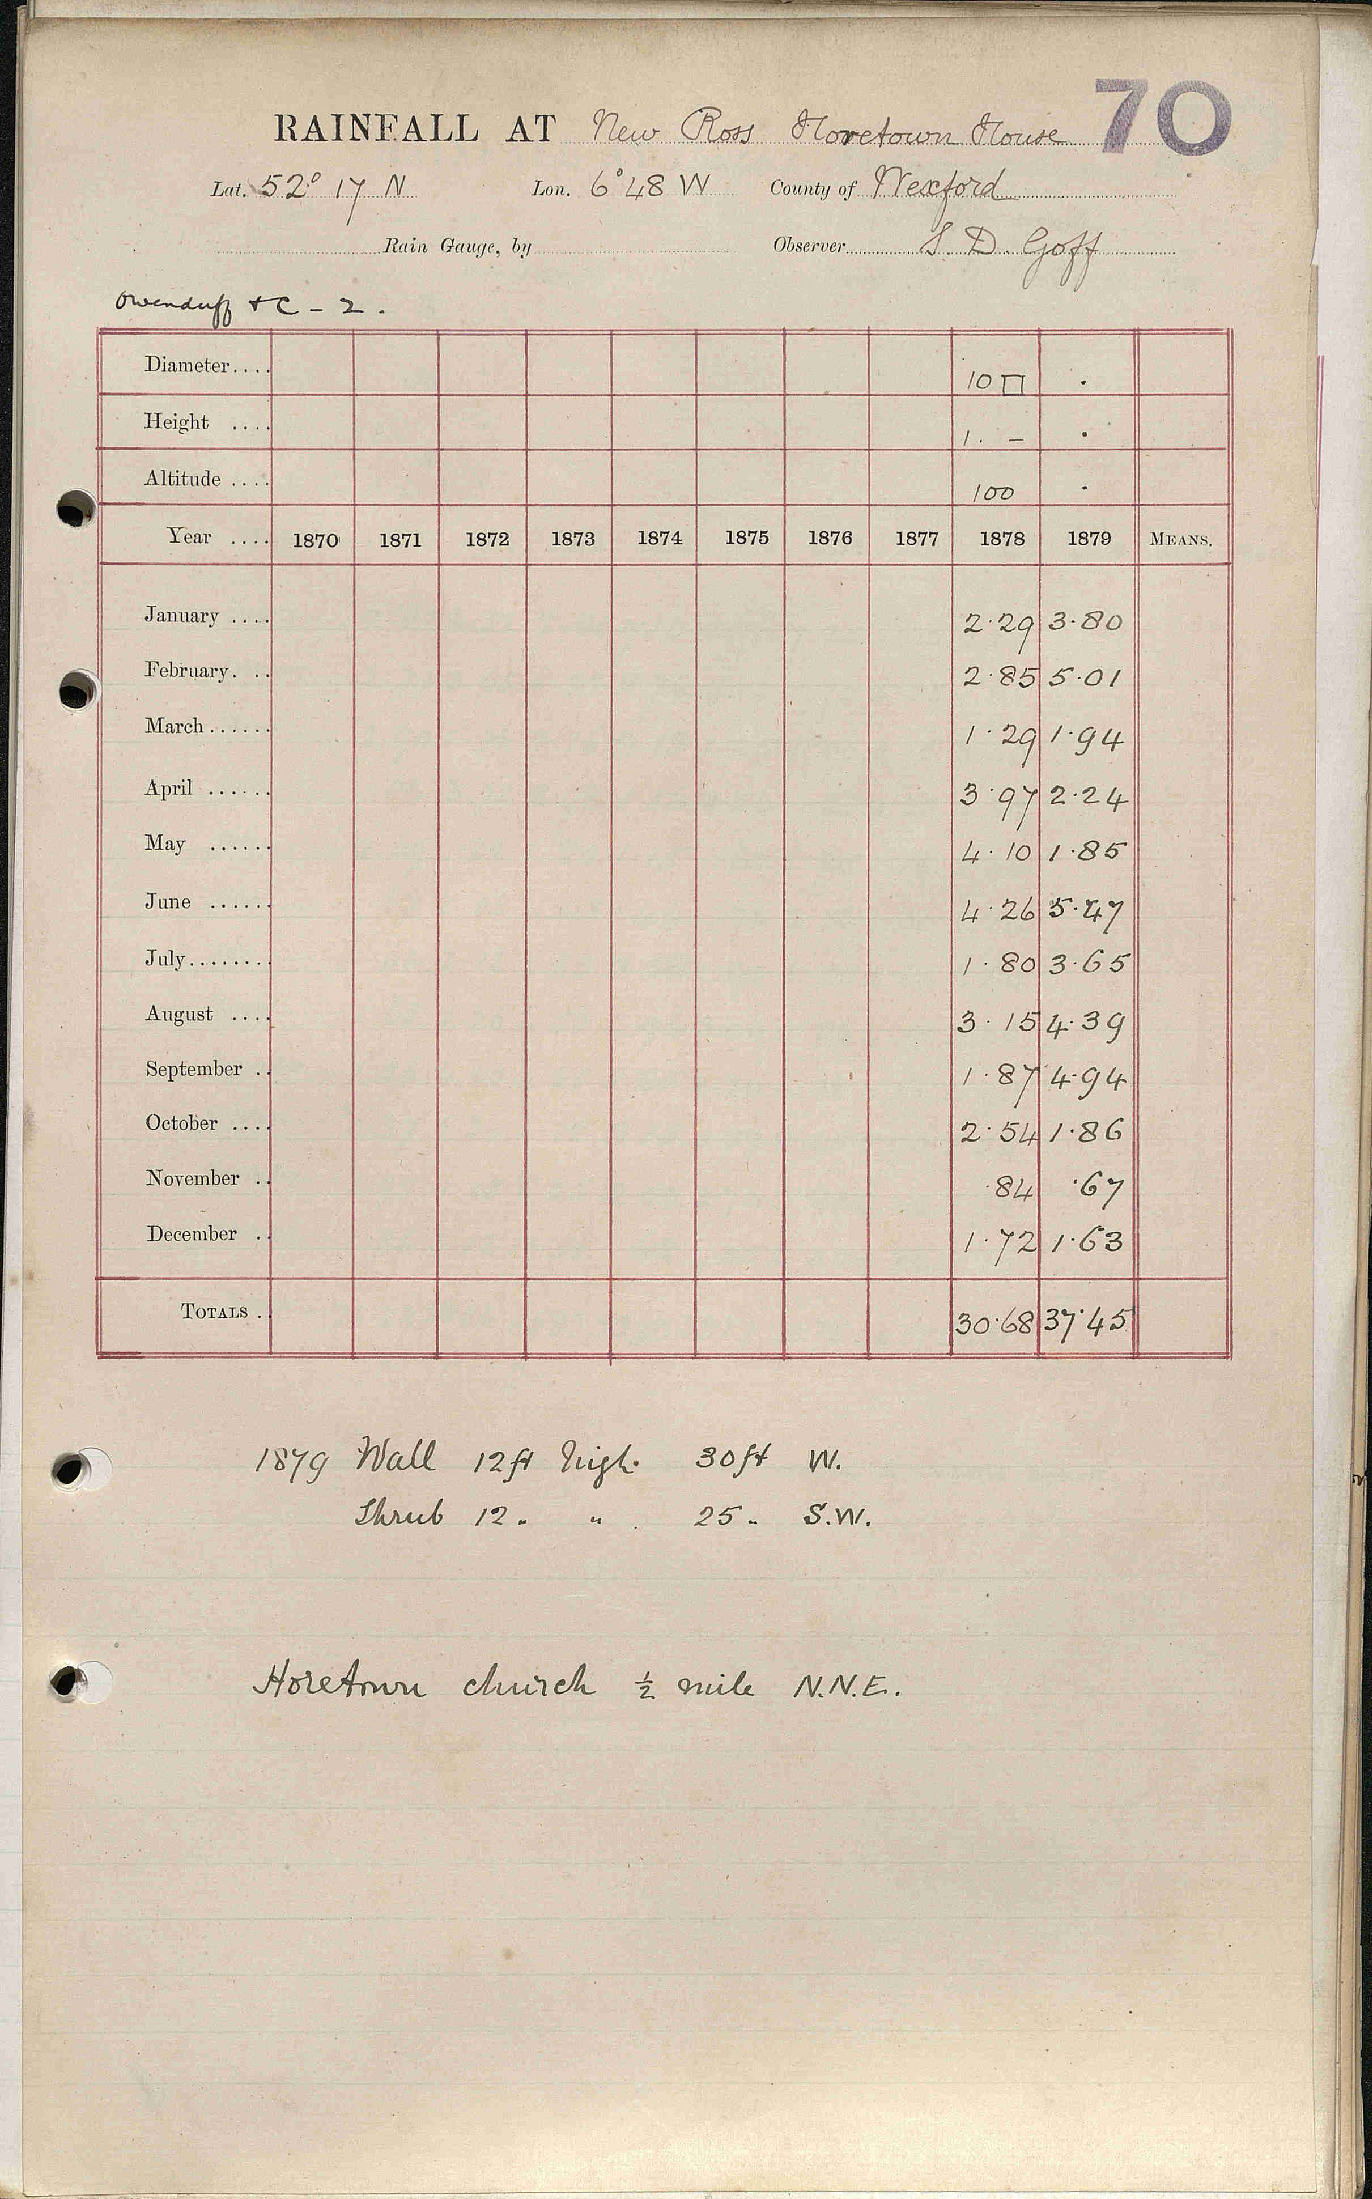 70
RAINFALL AT New Ross Horetown House
Lat. 52° 17 N Lon. 6° 48 W County of Wexford
Rain Gauge, by Observer S. D. Goff
Owenduff & C - 2.
Diameter.... 10 □ .
Height .... 1. - .
Altitude .... 100 .
Year .... 1870 1871 1872 1873 1874 1875 1876 1877 1878 1879 MEANS.
January .... 2.29 3.80
February. .. 2.85 5.01
March ...... 1.29 1.94
April ...... 3.97 2.24
May ...... 4.10 1.85
June ...... 4.26 5.47
July........ 1.80 3.65
August .... 3.15 4.39
September .. 1.87 4.94
October .... 2.54 1.86
November .. .84 .67
December .. 1.72 1.63
TOTALS . 30.68 37.45
1879 Wall 12ft high. 30ft W.
Shrub 12 " " 25 " S.W.
Horetown church ½ mile N.N.E.